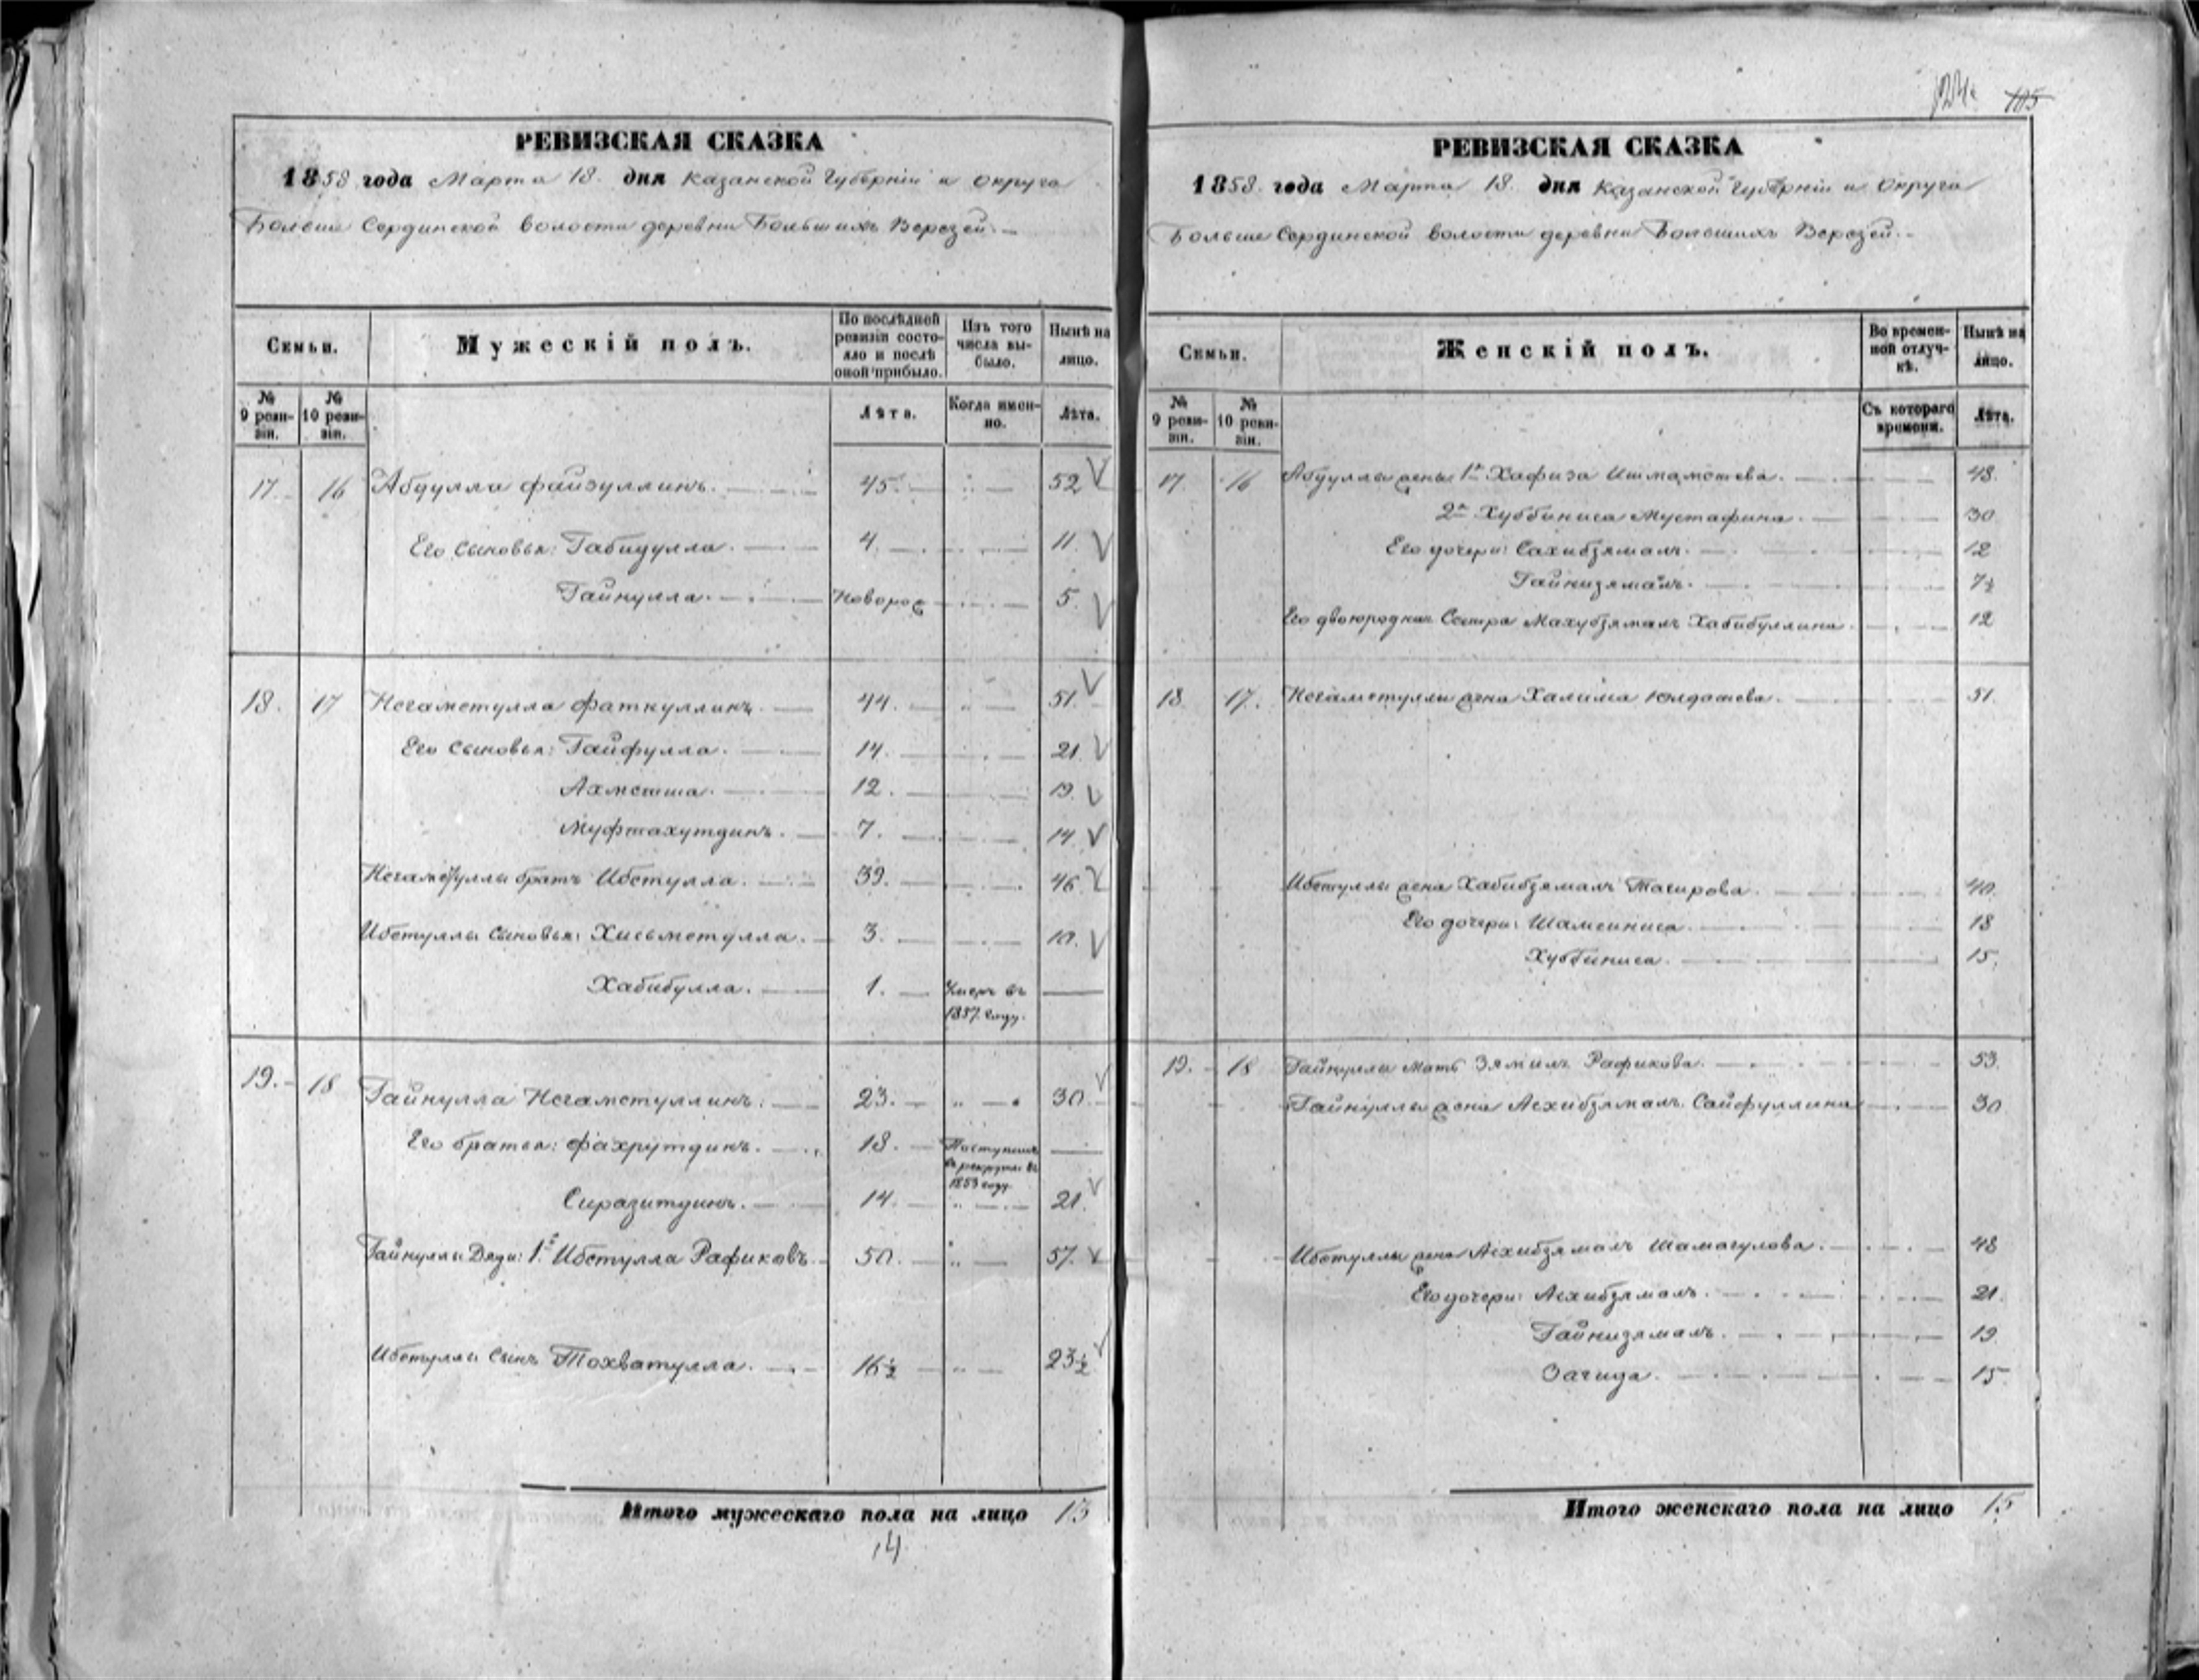 124 105
РЕВИЗСКАЯ СКАЗКА
1858 года Марта 18. дня Казанской Губерніи и Округа
Больше Сердинской волости деревни Большихъ Верезей.
Семьи. Мужескій полъ. По послѣдней ревизіи состояло и послѣ оной прибыло. Изъ того числа выбыло. Нынѣ на лицо.
№ 9 ревизіи. № 10 ревизіи. Лѣта. Когда именно. Лѣта.
17. 16 Абдулла Файзуллинъ. 45. 52
Его сыновья: Габидулла. 4. 11.
Гайнулла. Новорож 5.
18. 17 Негаметулла Фаткуллинъ. 44. 51.
Его сыновья: Гайфулла. 14. 21
Ахметша. 12. 19.
Муфтахутдинъ. 7. 14
Негаметуллы братъ Ибетулла. 39. 46.
Ибетуллы сыновья: Хисьметулла. 3. 10.
Хабибулла. 1. Умеръ въ
1857. году.
19. 18 Гайнулла Негаметуллинъ. 23. 30.
Его братья: Фахрутдинъ. 18. Поступилъ
въ рекруты въ
1853 году.
Сиразитдинъ. 14. 21.
Гайнуллы Дяди: 1й Ибетулла Рафиковъ. 50. 57.
Ибетуллы сынъ Тохватулла. 16½ 23½
Итого мужескаго пола на лицо 13
14
РЕВИЗСКАЯ СКАЗКА
1858. года Марта 18. дня Казанской Губерніи и Округа
Больше Сердинской волости деревни Большихъ Верезей.
Семьи. Женскій полъ. Во временной отлучкѣ. Нынѣ на лицо.
№ 9 ревизіи. № 10 ревизіи. Съ котораго времени. Лѣта.
17. 16 Абдуллы жены 1я Хафиза Ишмаметева. 48.
2я Хуббиниса Мустафина. 30
Его дочери: Сахибзямалъ. 12
Гайнизямалъ. 7½
Его двоюродная Сестра Махубзямалъ Хабибуллина. 12
18. 17. Негаметуллы жена Халима Юлдашева. 51.
Ибетуллы жена Хабибзямалъ Тагирова. 40.
Его дочери: Шамсиниса. 18
Хуббиниса. 15.
19. 18 Гайнуллы мать Зямиля Рафикова. 53.
Гайнуллы жена Асхибзямалъ Сайфуллина 30
Ибетуллы жена Асхибзямалъ Шамагулова. 48
Его дочери: Асхибзямалъ. 21.
Гайнизямалъ. 19
Загида. 15.
Итого женскаго пола на лицо 15